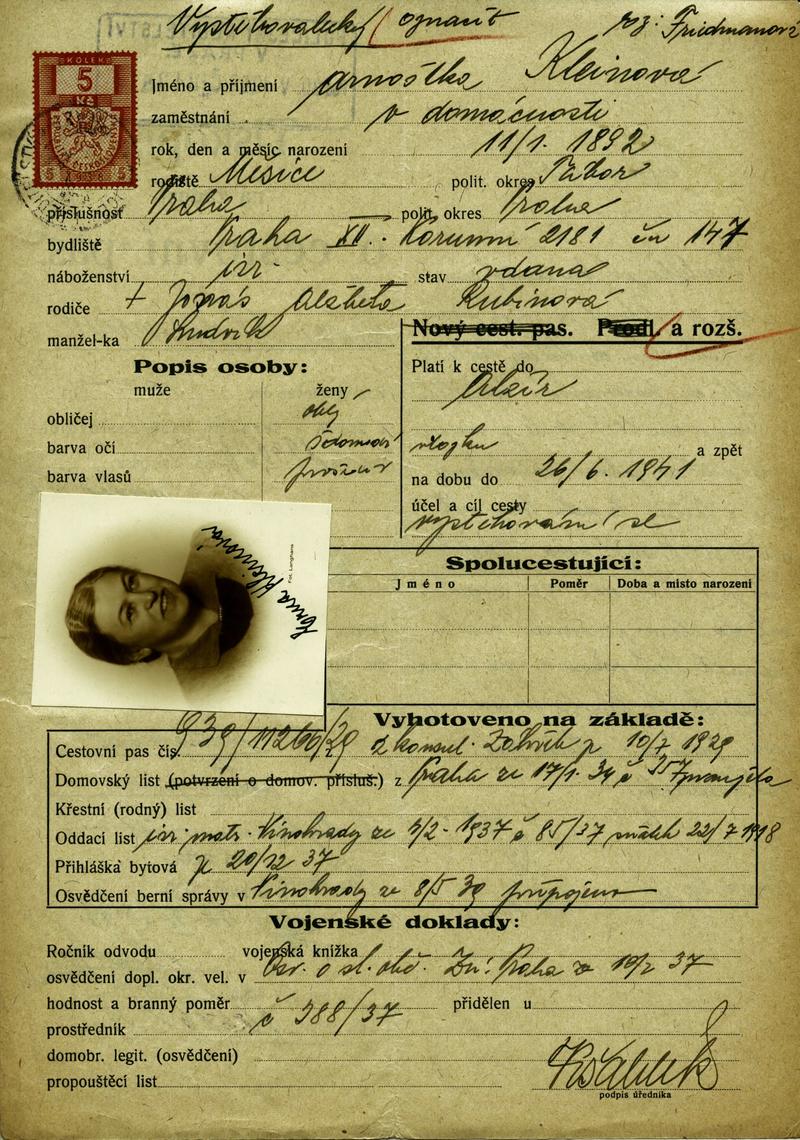 Vystěhovalecký označit
roz: Friedmanová
KOLEK
5
Kč
Jméno a příjmení Arnoštka Kleinová
zaměstnání v domácnosti
rok, den a měsíc narození 11/1. 1892
rodiště Měšice polit. okres Tábor
příslušnost Praha polit. okres Praha
bydliště Praha XII. Korunní 2181 čn 147
náboženství izr. stav vdaná
rodiče + Jonáš Alžběta Rubínová
manžel-ka Ludvík
Nový cest. pas. Prodl. a rozš.
Popis osoby:
muže ženy
obličej oblý
barva očí šedomodré
barva vlasů
Platí k cestě do
Alžír
a zpět
na dobu do 26/6. 1941
účel a cíl cesty
vystěhování se
Kleinová
Fot. Langhans
Spolucestující:
Jméno Poměr Doba a místo narození
Vyhotoveno na základě:
Cestovní pas čís. 939/11266/29 z konsul. Záhřeb z 10/7 1929
Domovský list (potvrzení o domov. přísluš.) z Praha ze 17/1. 34 č
Křestní (rodný) list
Oddací list izr. matr. Vinohrady ze 4/2 - 1937 č 85/37 sňatek 22/7 1918
Přihláška bytová z 20/12 37
Osvědčení berní správy v Vinohrady ze 8/5 39 připojeno
Vojenské doklady:
Ročník odvodu vojenská knižka
osvědčení dopl. okr. vel. v Osv. o st. obč. Zn: Praha z 10/2 37
hodnost a branný poměr č 988/37 přidělen u
prostředník
domobr. legit. (osvědčení)
propouštěcí list
podpis úředníka